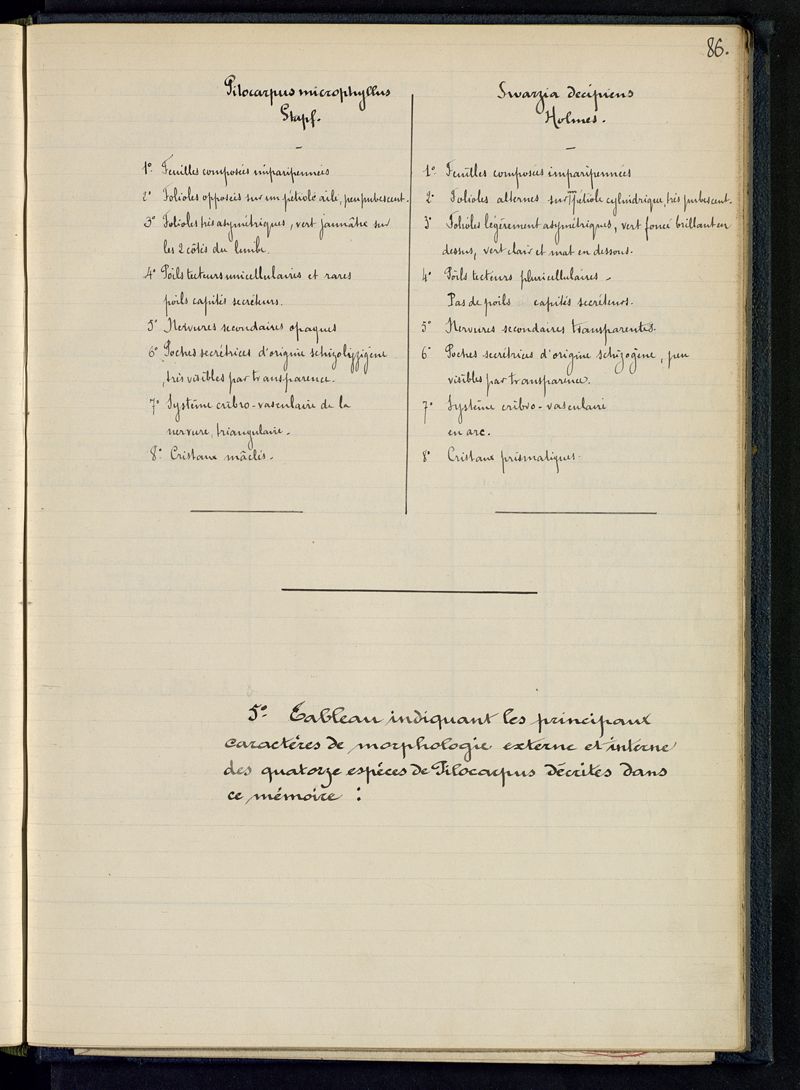 86.
Pilocarpus microphyllus
Stapf.
1° Feuilles composées imparipennées
2° Folioles opposées sur un pétiole ailé, peu pubescent.
3° Folioles très asymétriques, vert jaunâtre sur
les 2 côtés du limbe.
4° Poils tecteurs unicellulaires et rares
poils capités sécréteurs.
5° Nervures secondaires opaques
6° Poches secrétrices d'origine schizolyzigène
très visibles par transparence.
7° Système cribro-vasculaire de la
nervure, triangulaire.
8° Cristaux mâclés.
Swarzia decipiens
Holmes.
1° Feuilles composées imparipennées
2° Folioles alternes sur pétiole cylindrique, très pubescent.
3° Folioles légèrement asymétriques, vert foncé brillant en
dessus, vert clair et mat en dessous.
4° Poils tecteurs pluricellulaires -
Pas de poils capités sécréteurs.
5° Nervures secondaires transparentes.
6° Poches secrétrices d'origine schizogène, peu
visibles par transparence.
7° Système cribro-vasculaire
en arc.
8° Cristaux prismatiques.
5° Tableau indiquant les principaux
caractères de morphologie externe et interne
des quatorze espèces de Pilocarpus décrites dans
ce mémoire :